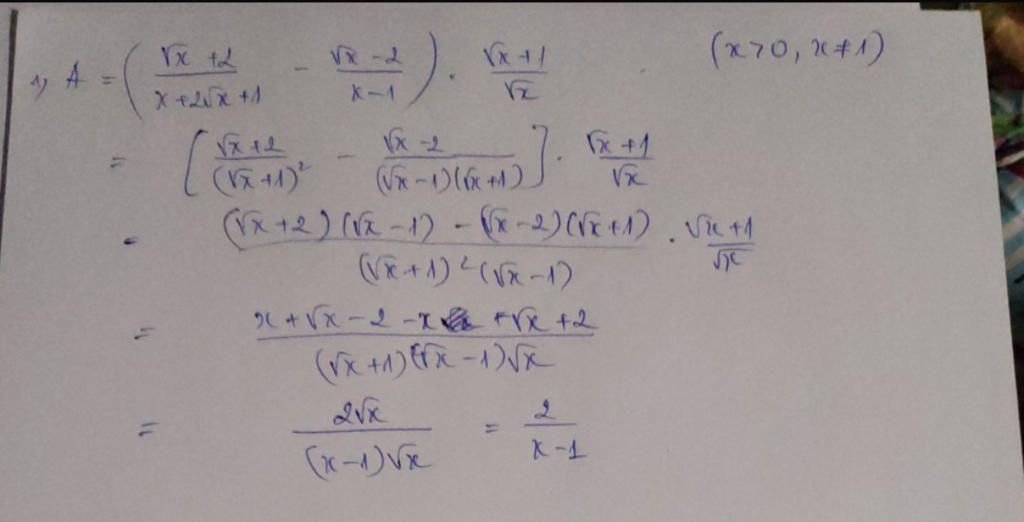 1) A = ( (√x +2)/(x+2√x+1) - (√x -2)/(x-1) ) . (√x+1)/√x (x>0, x≠1)
= [ (√x+2)/(√x+1)² - (√x -2)/((√x-1)(√x+1)) ] . (√x+1)/√x
= ((√x+2)(√x-1) - (√x-2)(√x+1))/((√x+1)²(√x-1)) . (√x+1)/√x
= (x+√x-2-x+√x+2)/((√x+1)(√x-1)√x)
= 2√x/((x-1)√x) = 2/(x-1)